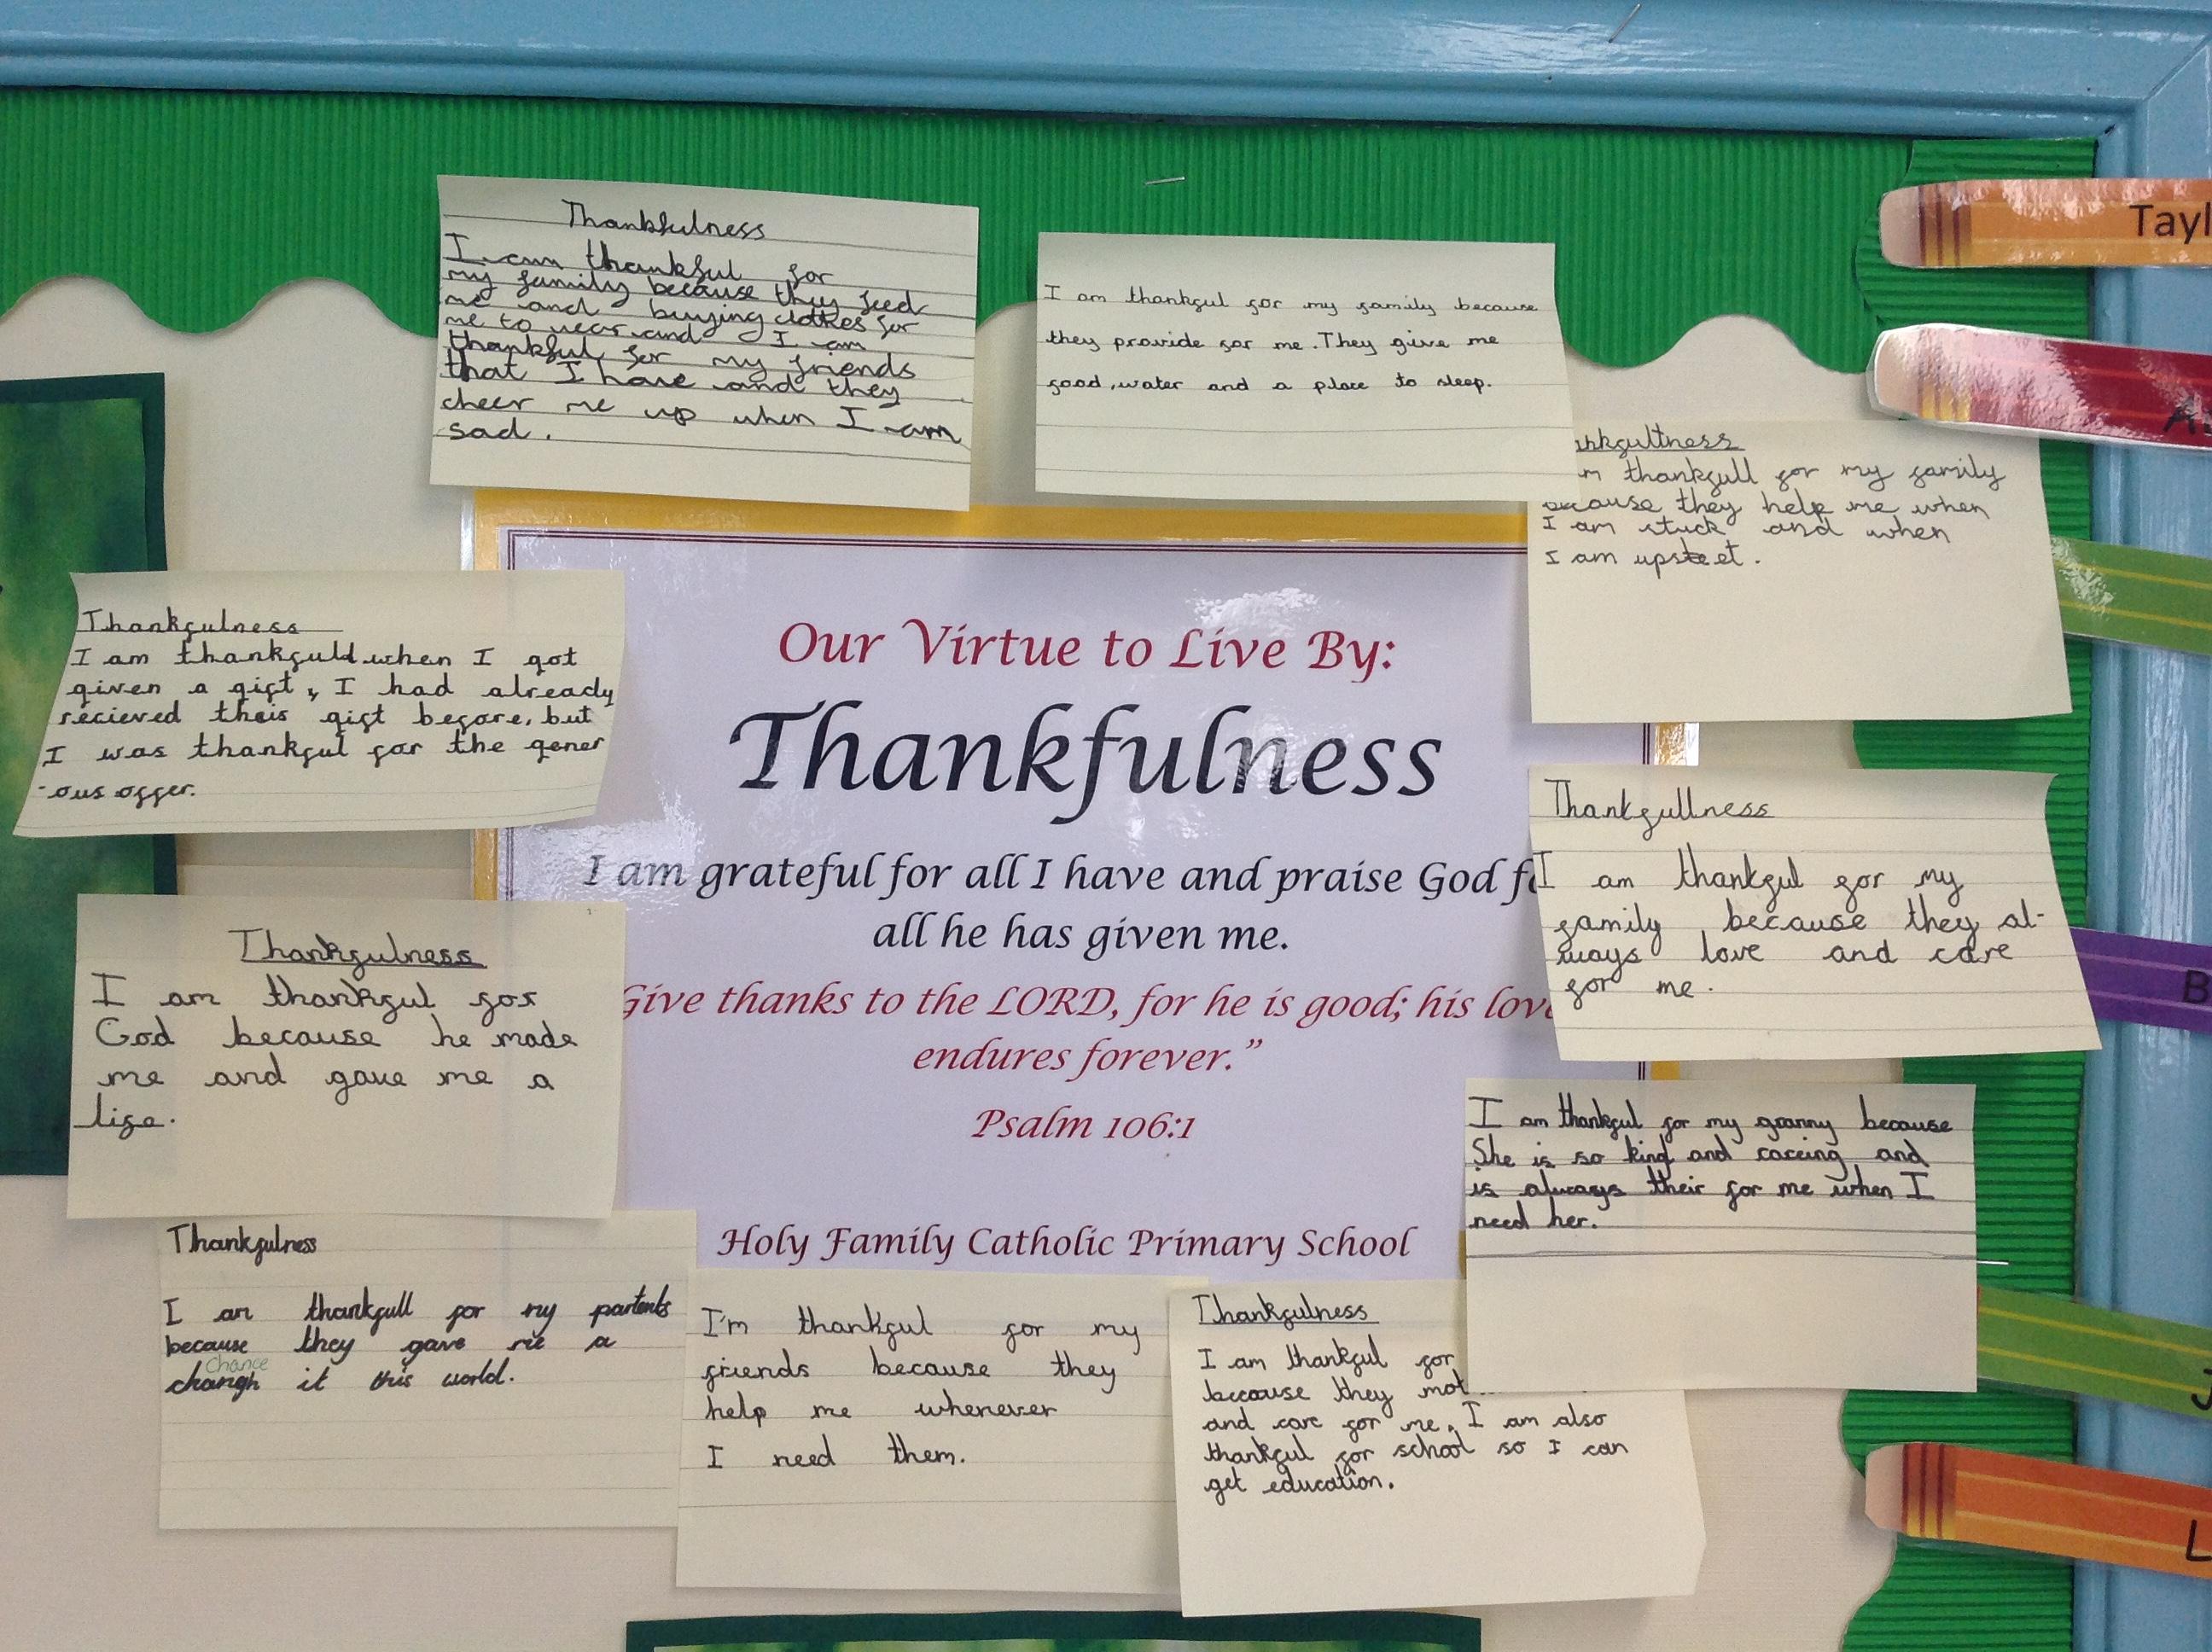 Thankfulness
I am thankful for
my family because they feed
me and buying clothes for
me to wear and I am
thankful for my friends
that I have and they
cheer me up when I am
sad.
I am thankful for my family because
they provide for me. They give me
food, water and a place to sleep.
Tayl
ankfulltness
m thankfull for my family
because they help me when
I am stuck and when
I am upset.
Thankfulness
I am thankfuld when I got
given a gift, I had already
recieved theis gift before, but
I was thankful for the gener
-ous offer.
Our Virtue to Live By:
Thankfulness
I am grateful for all I have and praise God fo
all he has given me.
Give thanks to the LORD, for he is good; his love
endures forever.”
Psalm 106:1
Holy Family Catholic Primary School
Thankfullness
I am thankful for my
family because they al-
ways love and care
for me.
B
Thankfulness
I am thankful for
God because he made
me and gave me a
life.
I am thankful for my granny because
She is so kind and careing and
is always their for me when I
need her.
Thankfulness
I am thankfull for my parents
because they gave me a
chance
changh it this world.
I'm thankful for my
friends because they
help me whenever
I need them.
Thankfulness
I am thankful for
because they mot
and care for me, I am also
thankful for school so I can
get education.
J
L